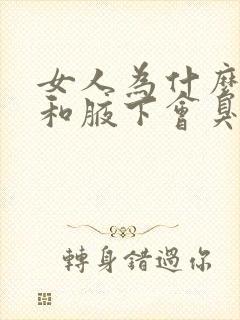 女人為什麼
和腋下會臭
轉身錯過你